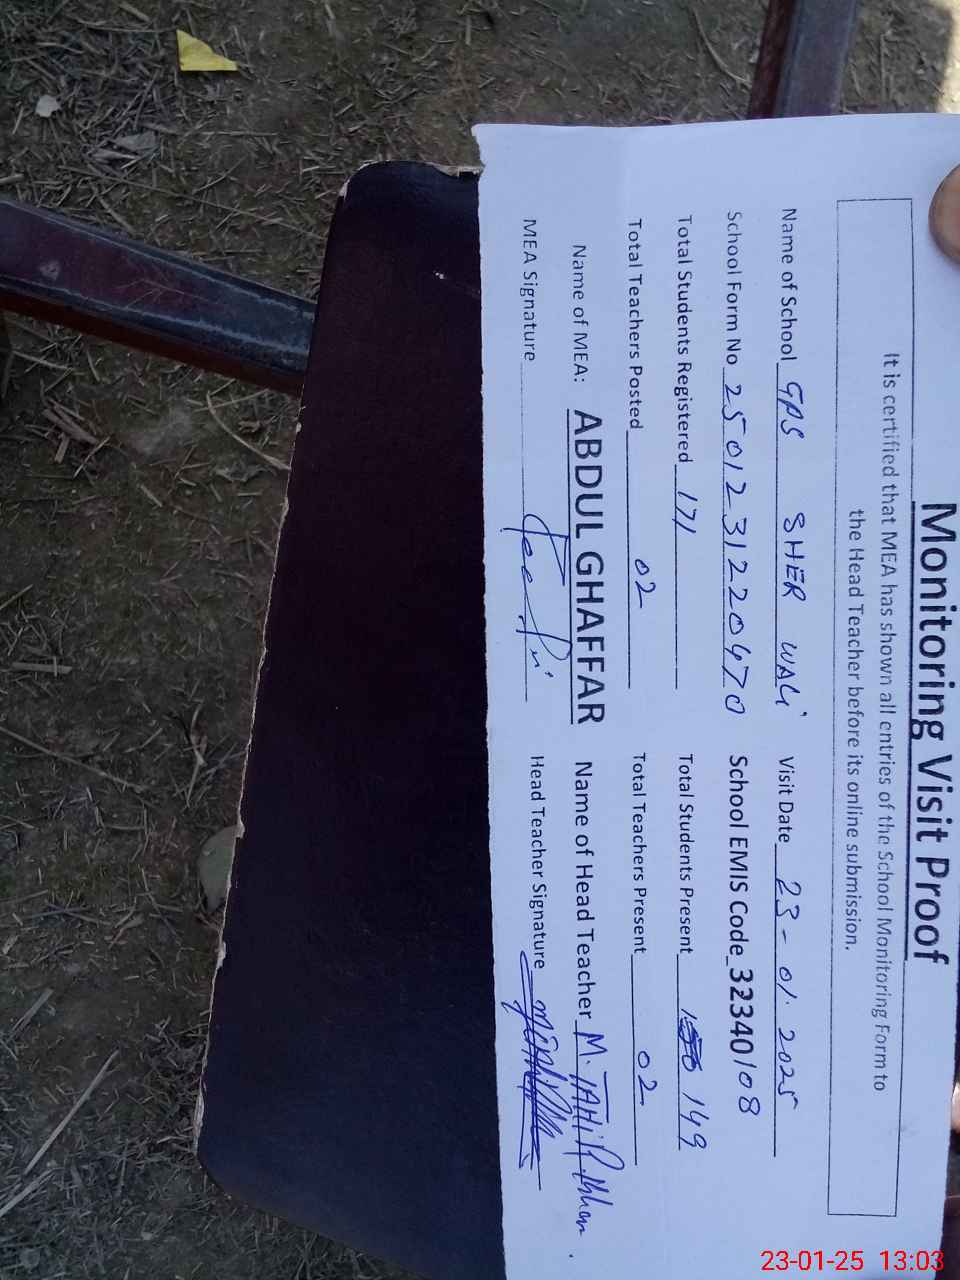 Monitoring Visit Proof
It is certified that MEA has shown all entries of the School Monitoring Form to
the Head Teacher before its online submission.
Name of School GPS SHER WALI Visit Date 23-01-2025
School Form No 2501231220470 School EMIS Code 32340108
Total Students Registered 171 Total Students Present 149
Total Teachers Posted 02 Total Teachers Present 02
Name of MEA: ABDUL GHAFFAR Name of Head Teacher M. TAHIR
MEA Signature Head Teacher Signature
23-01-25 13:03